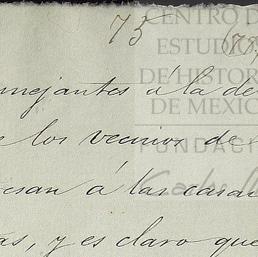 75
CENTRO D
ESTUD
DE HISTOR
DE MEXIC
FUNDAC
mejantes á la de
los vecinos de
á las casa
as, y es claro que